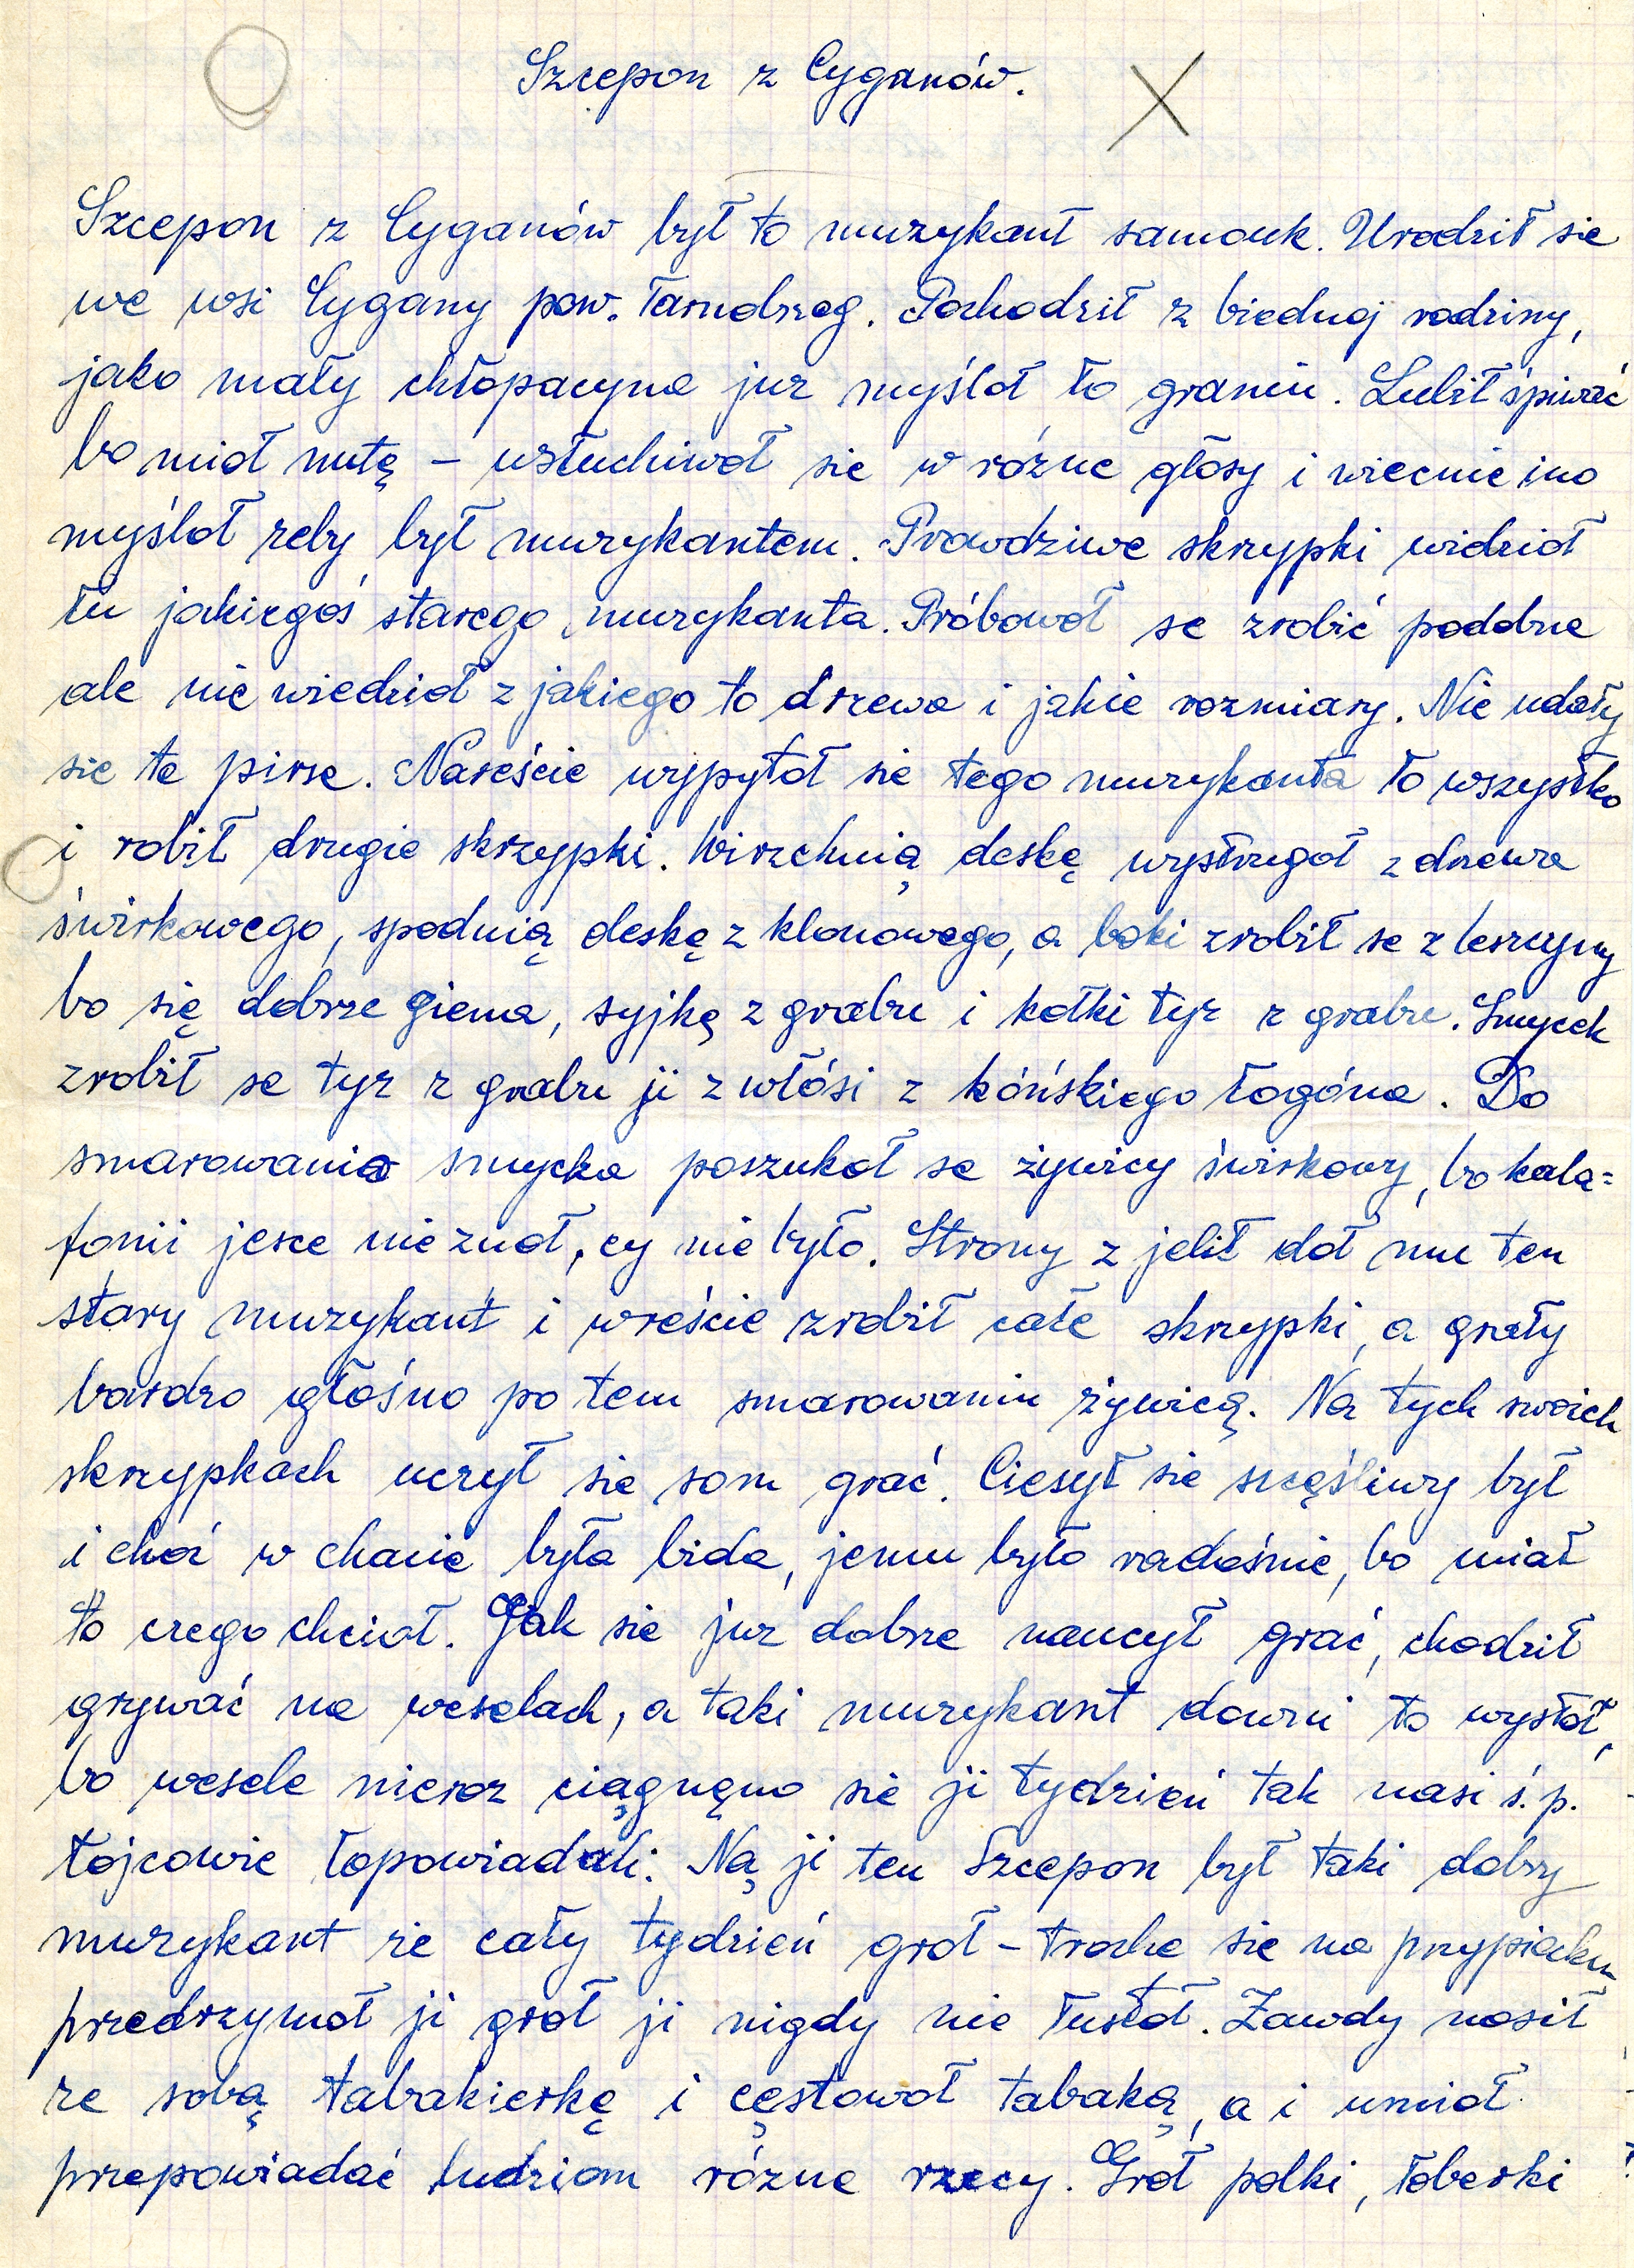 Szcepon z Cyganów.
Szcepon z Cyganów był to muzykant samouk. Urodził sie
we wsi Cygany pow. Tarnobrzeg. Pochodził z biednej rodziny,
jako mały chłopacyna juz myśloł ło graniu. Lubił śpiwać
bo mioł nutę – wsłuchiwoł sie w rózne głosy i wiecnie ino
myśloł zeby był muzykantem. Prawdziwe skrzypki widzioł
łu jakiegoś starego muzykanta. Próbowoł se zrobić podobne
ale nie wiedzioł z jakiego to drzewa i jakie rozmiary. Nie udały
sie te pirse. Nareście wypytoł sie tego muzykanta ło wszystko
i robił drugie skrzypki. Wirzchnią deskę wystrugoł z drzewa
świrkowego, spodnią deskę z klonowego, a boki zrobił se z leszczyny
bo się dobrze giena, syjkę z grabu i kołki tyz z grabu. Smycek
zrobił se tyz z grabu ji z włósi z kóńskiego łogóna. Do
smarowania smycka poszukoł se żywicy świrkowy, bo kala=
fonii jesce nie znoł, cy nie było. Strony z jelit doł mu ten
stary muzykant i wreście zrobił całe skrzypki, a grały
bardzo głośno po tem smarowaniu żywicą. Na tych swoich
skrzypkach uczył sie som grać. Ciesył sie scęśliwy był
i choć w chacie była bida, jemu było radośnie, bo miał
to czego chcioł. Jak sie juz dobrze naucył grać, chodził
grywać na weselach, a taki muzykant dawni to wystoł,
bo wesele nieroz ciągnęno sie ji tydzień tak nasi ś.p.
łojcowie łopowiadali. Ną ji ten Szcepon był taki dobry
muzykant ze cały tydzień groł – troche sie na przypiecku
przedrzymoł ji groł ji nigdy nie łustoł. Zawdy nosił
ze sobą tabakierkę i cęstowoł tabaką, a i umioł
przepowiadać ludziom rózne rzecy. Groł polki, łoberki